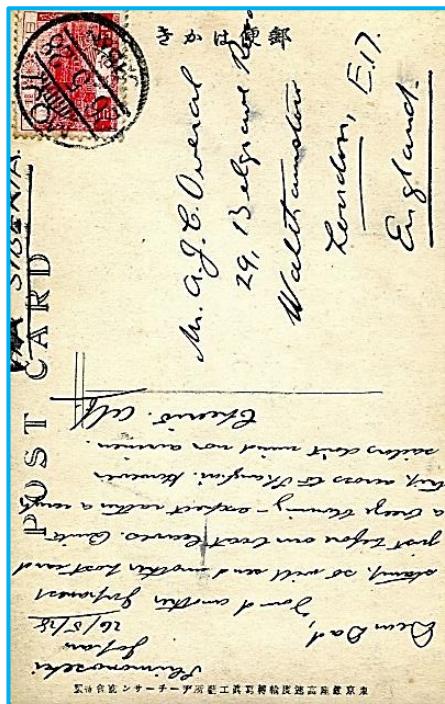 郵便はかき
POST CARD
SIBERIA.
MOJI
Mr. A. J. C. Overal
29, Belgrave
Walthamstow
London, E.17.
England.
Shimonoseki
Japan
26/5/28
Dear Dad,
Found another Japanese
stamp, so will send another post card
just before our boat leaves. Quite
a breeze blowing – expect rather a rough
trip across to Shanghai. However
sailors don't mind nor airmen.
Cheerio. Alf